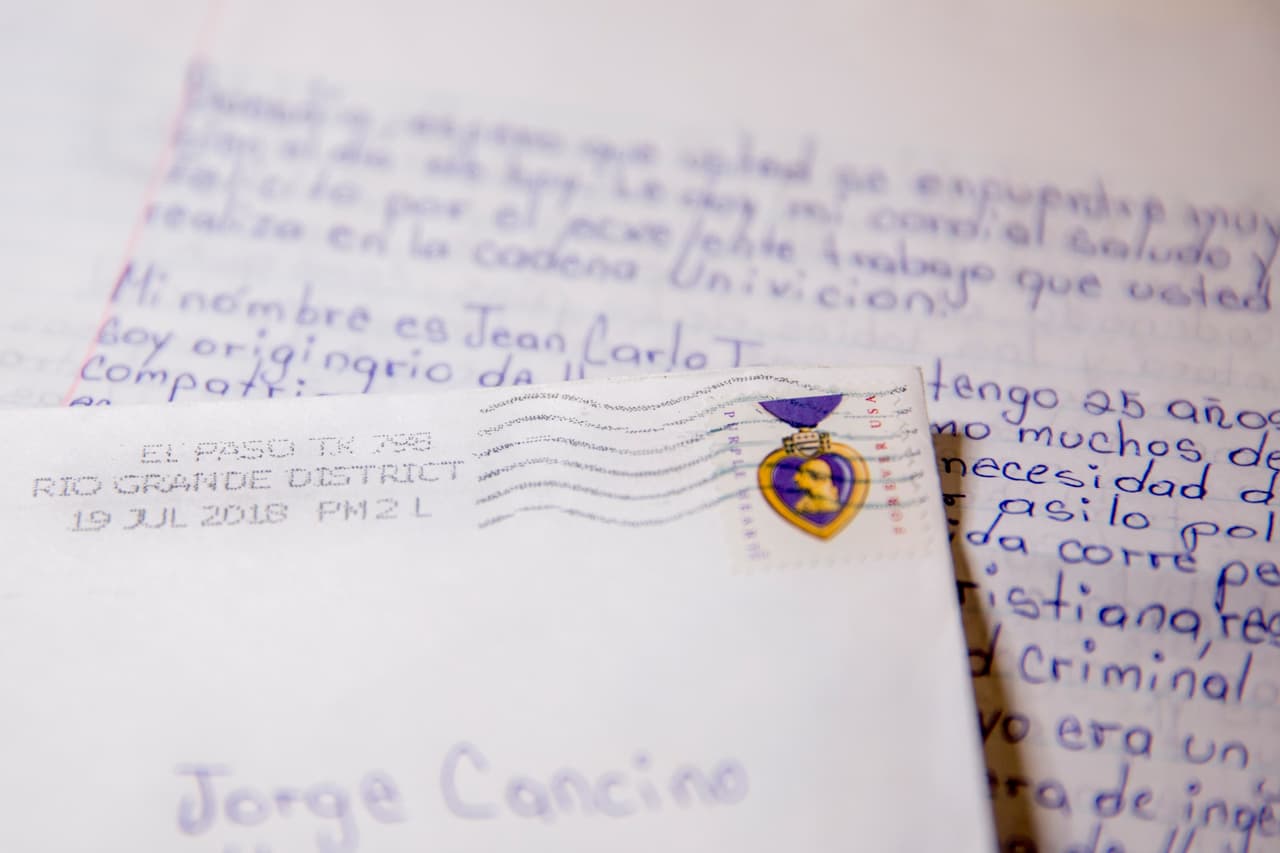 espero que usted se encuentre muy
bien el dia de hoy. Le doy mi cordial saludo y
felicito por el excelente trabajo que usted
realiza en la cadena Univicion.
Mi nombre es Jean Carlo T
tengo 25 años
Soy originario de
no muchos de
compatri
necesidad d
en
asilo pol
ida corre pe
ristiana, res
d criminal
yo era un
era de inge
EL PASO TX 798
RIO GRANDE DISTRICT
19 JUL 2018 PM 2 L
PURPLE HEART
FOREVER USA
Jorge Cancino